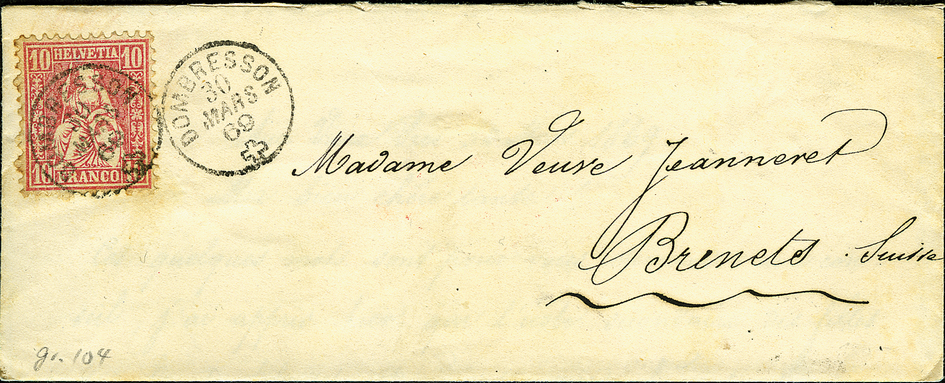 10 HELVETIA 10
10 FRANCO
DOMBRESSON
30
MARS
69
Madame Veuve Jeanneret
Brenets. Suisse
gr. 104